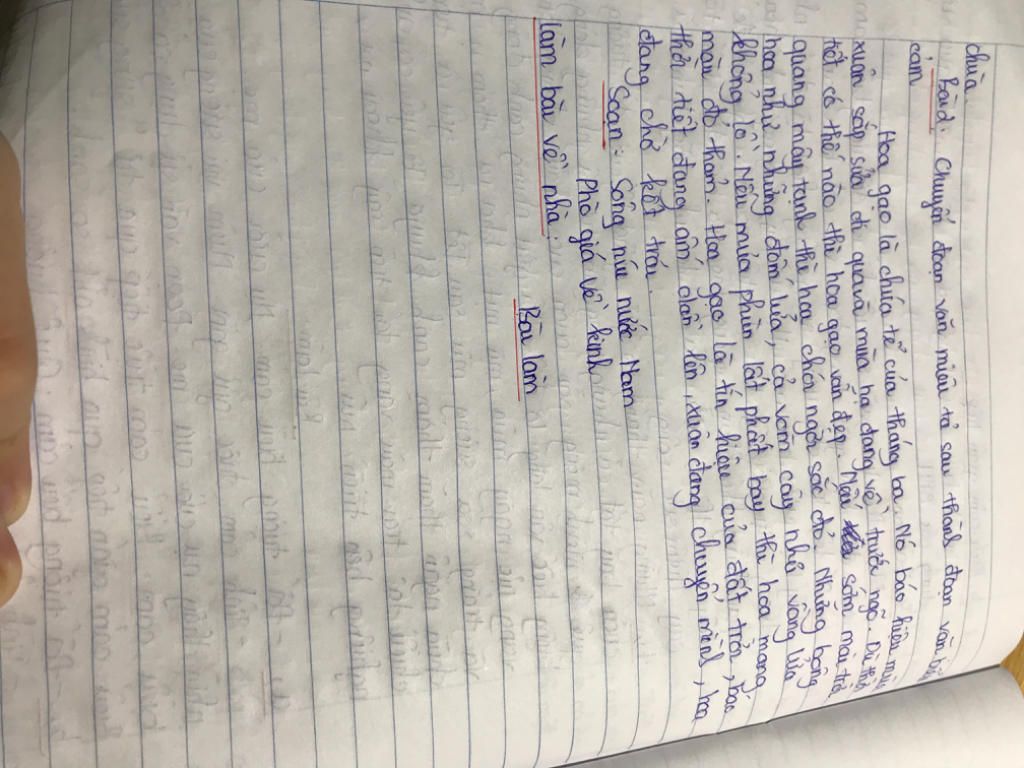 chùa.
Bài d: Chuyển đoạn văn miêu tả sau thành đoạn văn biểu
cảm
Hoa gạo là chúa tể của tháng ba. Nó báo hiệu mùa
xuân sắp sửa đi qua và mùa hạ đang về trước ngõ. Dù thời
tiết có thế nào thì hoa gạo vẫn đẹp. Nếu sớm mai trời
quang mây tạnh thì hoa chói ngời sắc đỏ. Những bông
hoa như những đốm lửa, cả vòm cây như vòng lửa
khổng lồ. Nếu mưa phùn lất phất bay thì hoa mang
màu đỏ thẫm. Hoa gạo là tín hiệu của đất trời, báo
thời tiết đang ấm dần lên, xuân đang chuyển mình, hoa
đang chờ kết trái.
Soạn: Sông núi nước Nam
Phò giá về kinh
Làm bài về nhà.
Bài làm